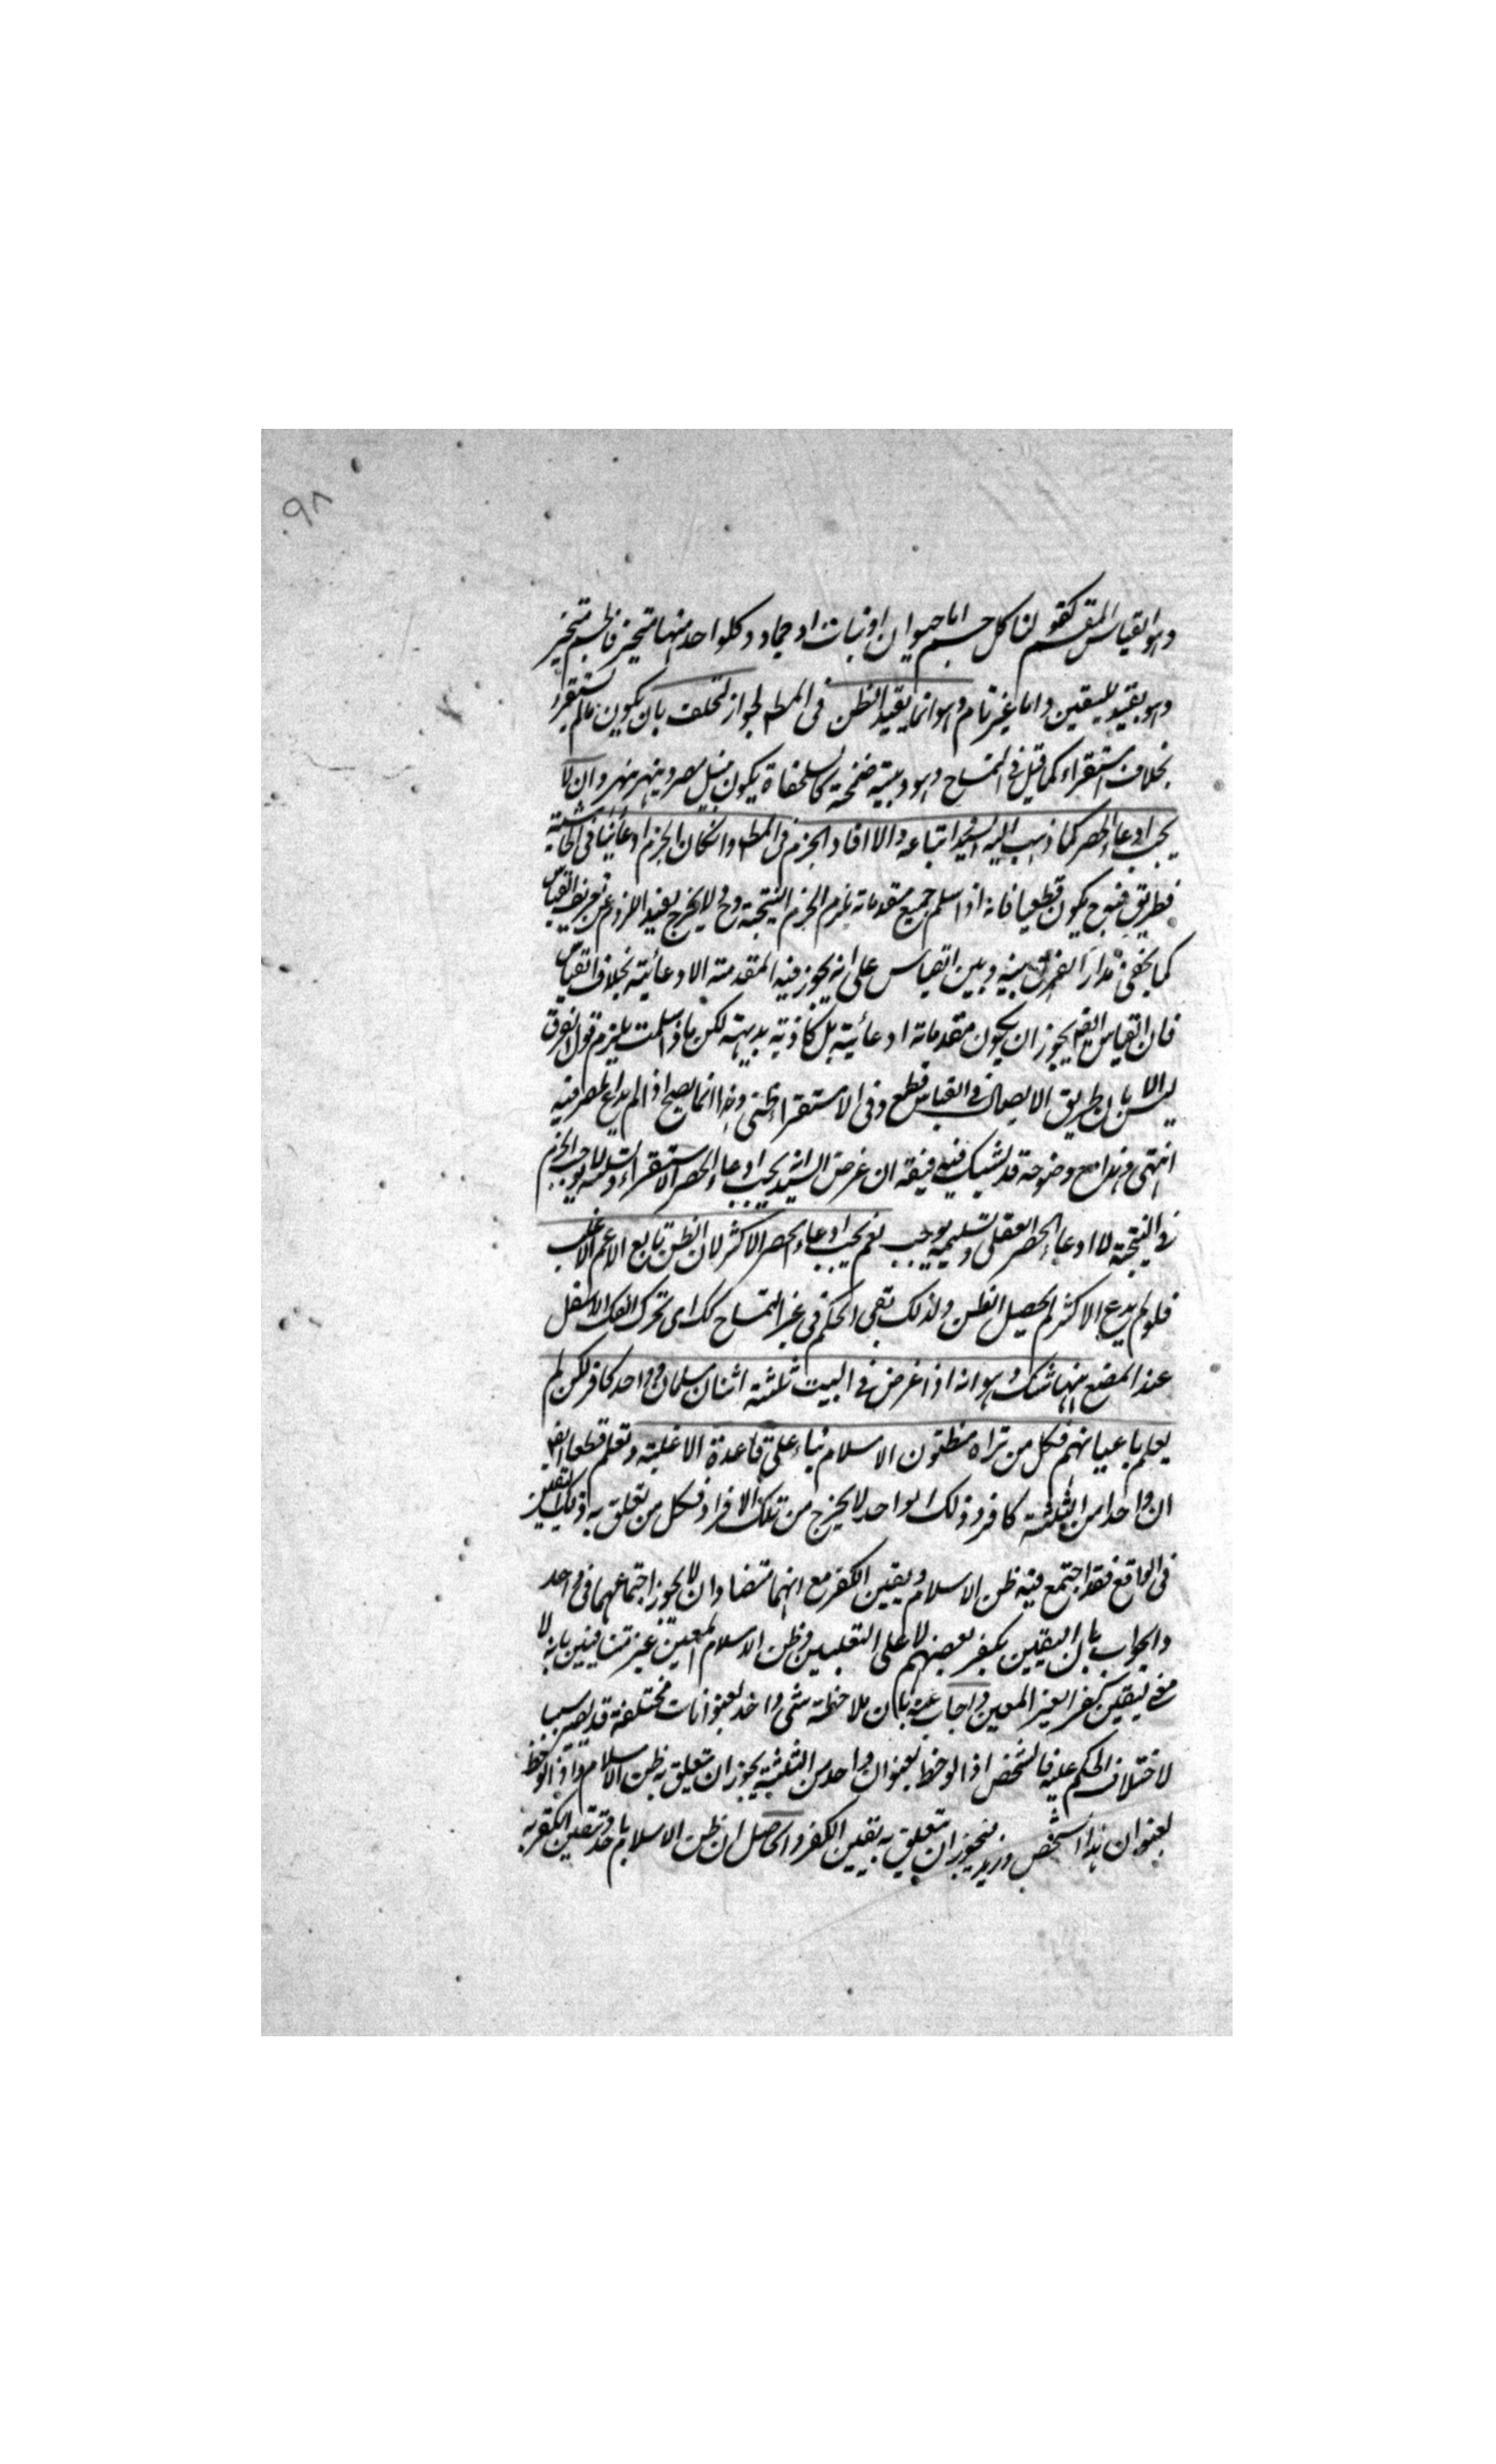 ٩٨
وهو القياس المقسم كقولنا كل جسم اما حيوان او نبات او جماد وكلواحد منها متحيز فالجسم متحيز
وهو يفيد لليقين واما غير تام وهو انما يفيد الظن فى المط لجواز التخلف بان يكون مالم يستقرء
بخلاف استقراء كما قيل فى التمساح وهو دبيبة ضخمة كالسلحفاة يكون بنيل مصر وبنهر مهر وان لا
يجب ادعاء الحصر كما ذهب اليه السيد واتباعه والا افاد الجزم فى المط وانكان الجزم ادعائيا فى الحاشية
فطريق فيوح يكون قطعيا فانه اذا سلم جميع مقدماته يلزم الجزم النتيجة وح لا يخرج بقيد اللزوم عن تعريف القياس
كما يخفى مدار الفرق بينه وبين القياس على انه يجوز فيه المقدمة الادعائية بخلاف القياس
فان القياس ايض يجوز ان يكون مقدماته ادعائية بل كاذبة بديهة لكن ما اذا سلمت يلزم قول الفرق
ليس الا بان طريق الايصال فى القياس قطع وفى الاستقراء ظنى وهذا انما يصح اذا لم يدع الحصر فيه
انتهى وهذا مع وضوحه قد يشبك فيه فيقه ان غرض السيد انه يجب ادعاء الحصر الاستقراء وتسليمه لا يوجب الجزم
فى النتيجة لا ادعاء الحصر العقلى وتسليمه يوجب نعم يجب ادعاء الحصر الاكثر لان الظن تابع الاعم الاغلب
فلو لم يدع الاكثر لم يحصل الظن ولذلك بقى الحكم فى غير التمساح كك اى تحرك الفك الاسفل
عند المضغ ههنا شك وهو انه اذا غرض فى البيت ثلثة اثنان مسلمان وواحد كافر لكن لم
يعلم باعيانهم فكل من تراه مظنون الاسلام بناء على قاعدة الاغلبية وتعلم قطعا ايض
ان واحدا من الثلثة كافر وذلك الواحد لا يخرج من تلك الافراد فكل من تعلق به ذلك اليقين
فى الواقع فقد اجتمع فيه ظن الاسلام ويقين الكفر مع انهما متضادان لا يجوز اجتماعهما فى واحد
والجواب بان اليقين بكفر بعضهم لا على التعيين وظن الاسلام المعين غير متنافيين بانه لا
معنى ليقين كفر الغير المعين واجاب عنه بان ملاحظة شى واحد بعنوانات مختلفة قد يصير سببا
لاختلاف الحكم عليه فالشخص اذا لوحظ بعنوان واحد من الثلثة يجوز ان يتعلق به ظن الاسلام واذا لوحظ
بعنوان هذا الشخص وزيد فيجوز ان يتعلق به يقين الكفر والحاصل ان ظن الاسلام باحد ويقين الكفر به